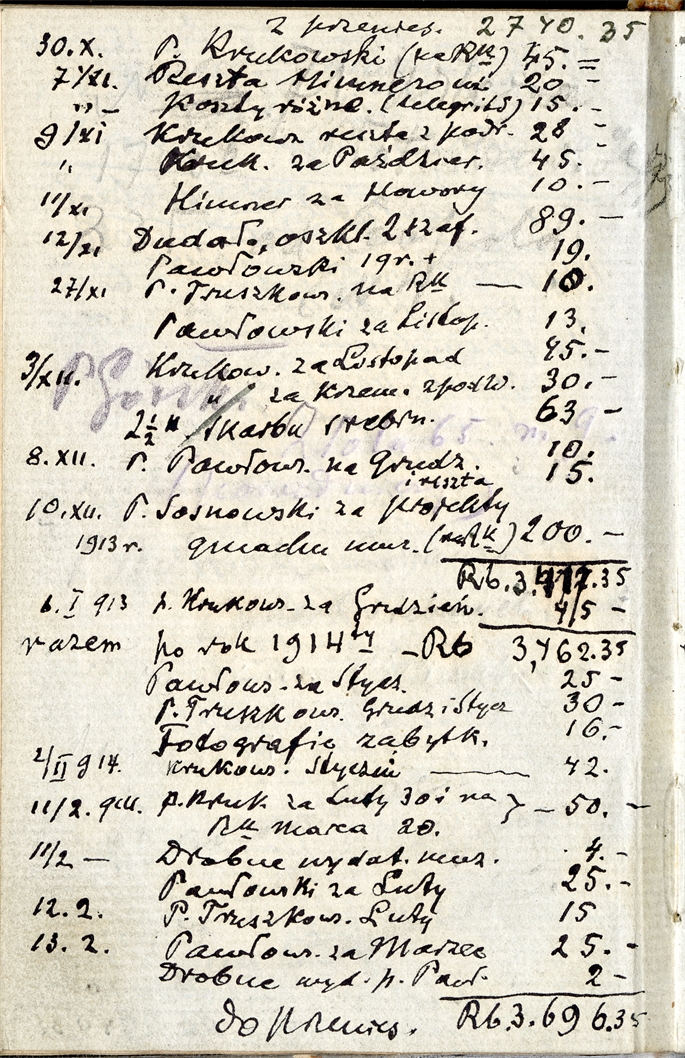 z przenies. 2740.35
30.X. P. Krukowski (na Rk) 45.=
7/XI. Reszta Himnerowi 20 -
" - Koszty różne. (telegr. i t.d.) 15.-
9/XI Krukows reszta z podr. 28 -
" Kruk. za Paździer. 45.-
11/XI Himner za Nowory 10.-
12/XI Dudało, oszkl. 2 szaf. 89.-
Pawłowski 19 r. + 19.
27/XI P. Truszkows. na Rk — 10.
Pawłowski za Listop. 13.
3/XII. Krukow. za Listopad 45.-
" za Krzem. z podw. 30.-
2½ " skarbu srebrn. 63 -
8.XII. P. Pawłows. na Grudz. 10.
i reszta 15.
10.XII. P. Sosnowski za projekty
1913 r. gmachu muz. (na Rk) 200.-
Rb.3.417.35
6.I 913 p. Krukows. za Grudzień. 45 -
razem po rok 1914ty - Rb 3,462.35
Pawłows. za Stycz. 25 -
P. Truszkows. Grudz i Stycz 30 -
Fotografie zabytk. 16.-
2/II 914. Krukows. Styczeń — 42.
11/2. 914. p. Kruk za Luty 30 i na } - 50.-
Rk marca 20.
11/2 - Drobne wydat. muz. 4.-
Pawłowski za Luty 25.-
12.2. P. Truszkows. Luty 15
13.2. Pawłows. za Marzec 25.-
Drobne wyd. p. Pawł. 2 -
do przenies. Rb.3.696.35